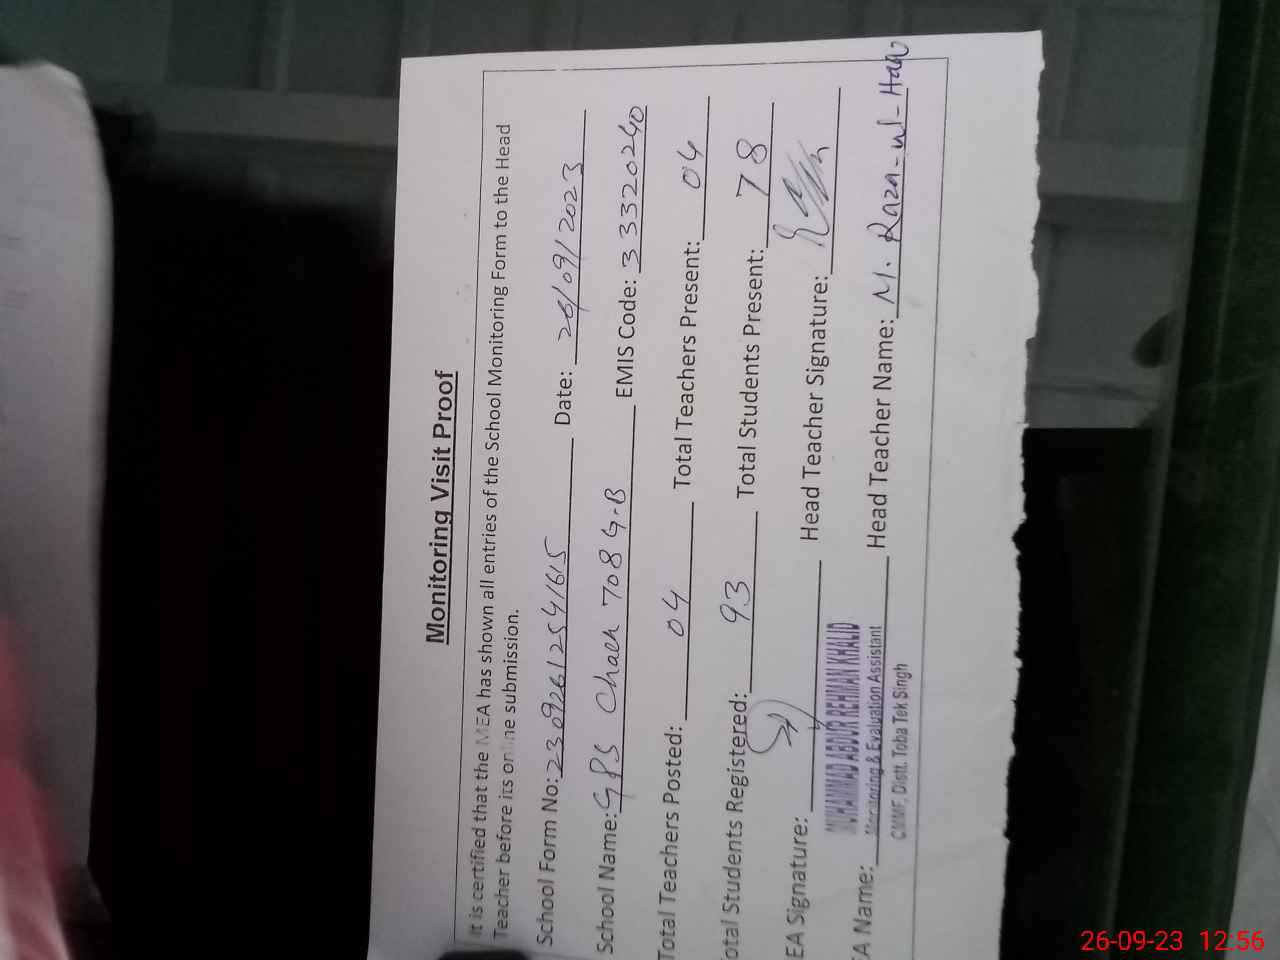 Monitoring Visit Proof
It is certified that the MEA has shown all entries of the School Monitoring Form to the Head
Teacher before its online submission.
School Form No: 23092612541615 Date: 26/09/2023
School Name: GPS Chack 708 G.B EMIS Code: 33320240
Total Teachers Posted: 04 Total Teachers Present: 04
otal Students Registered: 93 Total Students Present: 78
EA Signature: Head Teacher Signature:
EA Name: MUHAMMAD ABDUR REHMAN KHALID Head Teacher Name: M. Raza-ul-Haq
Monitoring & Evaluation Assistant
CMMF, Distt. Toba Tek Singh
26-09-23 12:56